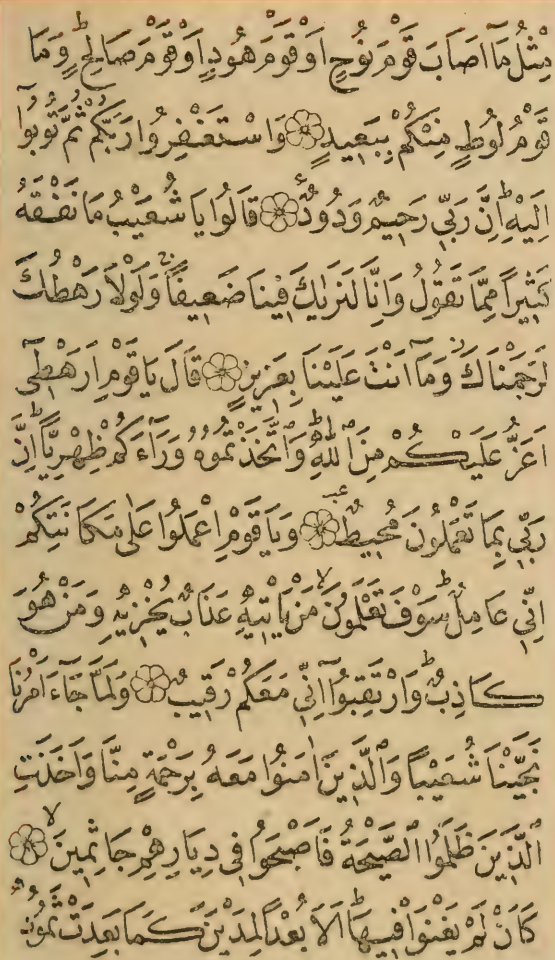 مِثْلُ مَٓا اَصَابَ قَوْمَ نُوحٍ اَوْ قَوْمَ هُودٍ اَوْ قَوْمَ صَالِحٍۜ وَمَا
قَوْمُ لُوطٍ مِنْكُمْ بِبَعٖيدٍ ۞ وَاسْتَغْفِرُوا رَبَّكُمْ ثُمَّ تُوبُٓوا
اِلَيْهِۜ اِنَّ رَبّٖي رَحٖيمٌ وَدُودٌ ۞ قَالُوا يَا شُعَيْبُ مَا نَفْقَهُ
كَثٖيرًا مِمَّا تَقُولُ وَاِنَّا لَنَرٰيكَ فٖينَا ضَعٖيفًاۚ وَلَوْلَا رَهْطُكَ
لَرَجَمْنَاكَۘ وَمَٓا اَنْتَ عَلَيْنَا بِعَزٖيزٍ ۞ قَالَ يَا قَوْمِ اَرَهْطٖٓي
اَعَزُّ عَلَيْكُمْ مِنَ اللّٰهِۜ وَاتَّخَذْتُمُوهُ وَرَٓاءَكُمْ ظِهْرِيًّاۜ اِنَّ
رَبّٖي بِمَا تَعْمَلُونَ مُحٖيطٌ ۞ وَيَا قَوْمِ اعْمَلُوا عَلٰى مَكَانَتِكُمْ
اِنّٖي عَامِلٌۜ سَوْفَ تَعْلَمُونَۙ مَنْ يَاْتٖيهِ عَذَابٌ يُخْزٖيهِ وَمَنْ هُوَ
كَاذِبٌۜ وَارْتَقِبُٓوا اِنّٖي مَعَكُمْ رَقٖيبٌ ۞ وَلَمَّا جَٓاءَ اَمْرُنَا
نَجَّيْنَا شُعَيْبًا وَالَّذٖينَ اٰمَنُوا مَعَهُ بِرَحْمَةٍ مِنَّا وَاَخَذَتِ
الَّذٖينَ ظَلَمُوا الصَّيْحَةُ فَاَصْبَحُوا فٖي دِيَارِهِمْ جَاثِمٖينَۙ ۞
كَاَنْ لَمْ يَغْنَوْا فٖيهَاۜ اَلَا بُعْدًا لِمَدْيَنَ كَمَا بَعِدَتْ ثَمُودُ